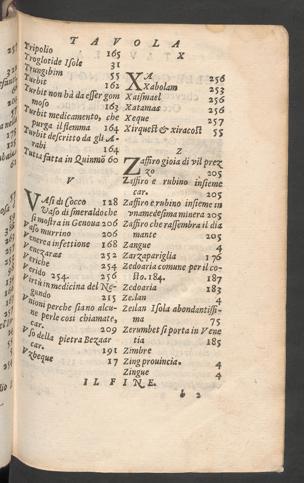 TAVOLA
Tripolio 165
Troglotide Isole 31
Trungibim 55
Turbit 162
Turbit non hà da esser gom
moso 163
Turbit medicamento, che
purga il flemma 164
Turbit descritto da gli A-
rabi 164
Tutta fatta in Quinmo 60
V
VAsi di Cocco 128
Vaso di smeraldo che
si mostra in Genoua 206
Vaso murrino 206
Venerea infettione 168
Venezaras 252
Veriche 254
Verido 254. 256
Virtù in medicina del Ne-
gundo 215
Vnioni perche siano alcu-
ne perle così chiamate,
car. 209
Vso della pietra Bezaar
car. 191
Vzbeque 17
X
XA 256
Xabolam 253
Xaismael 256
Xatamas 256
Xeque 257
Xirquest & xiracost 55
Z
Zaffiro gioia di vil prez
zo 205
Zaffiro e rubino insieme
car. 205
Zaffiro e rubino insieme in
vna medesima minera 205
Zaffiro che rassembra il dia
mante 205
Zangue 4
Zarzapariglia 176
Zedoaria comune per il co-
sto. 184. 187
Zedoaria 183
Zeilan 4
Zeilan Isola abondantissi-
ma 75
Zerumbet si porta in Vene
tia 185
Zimbre 4
Zing prouincia. 4
Zingue 4
IL FINE.
b 2